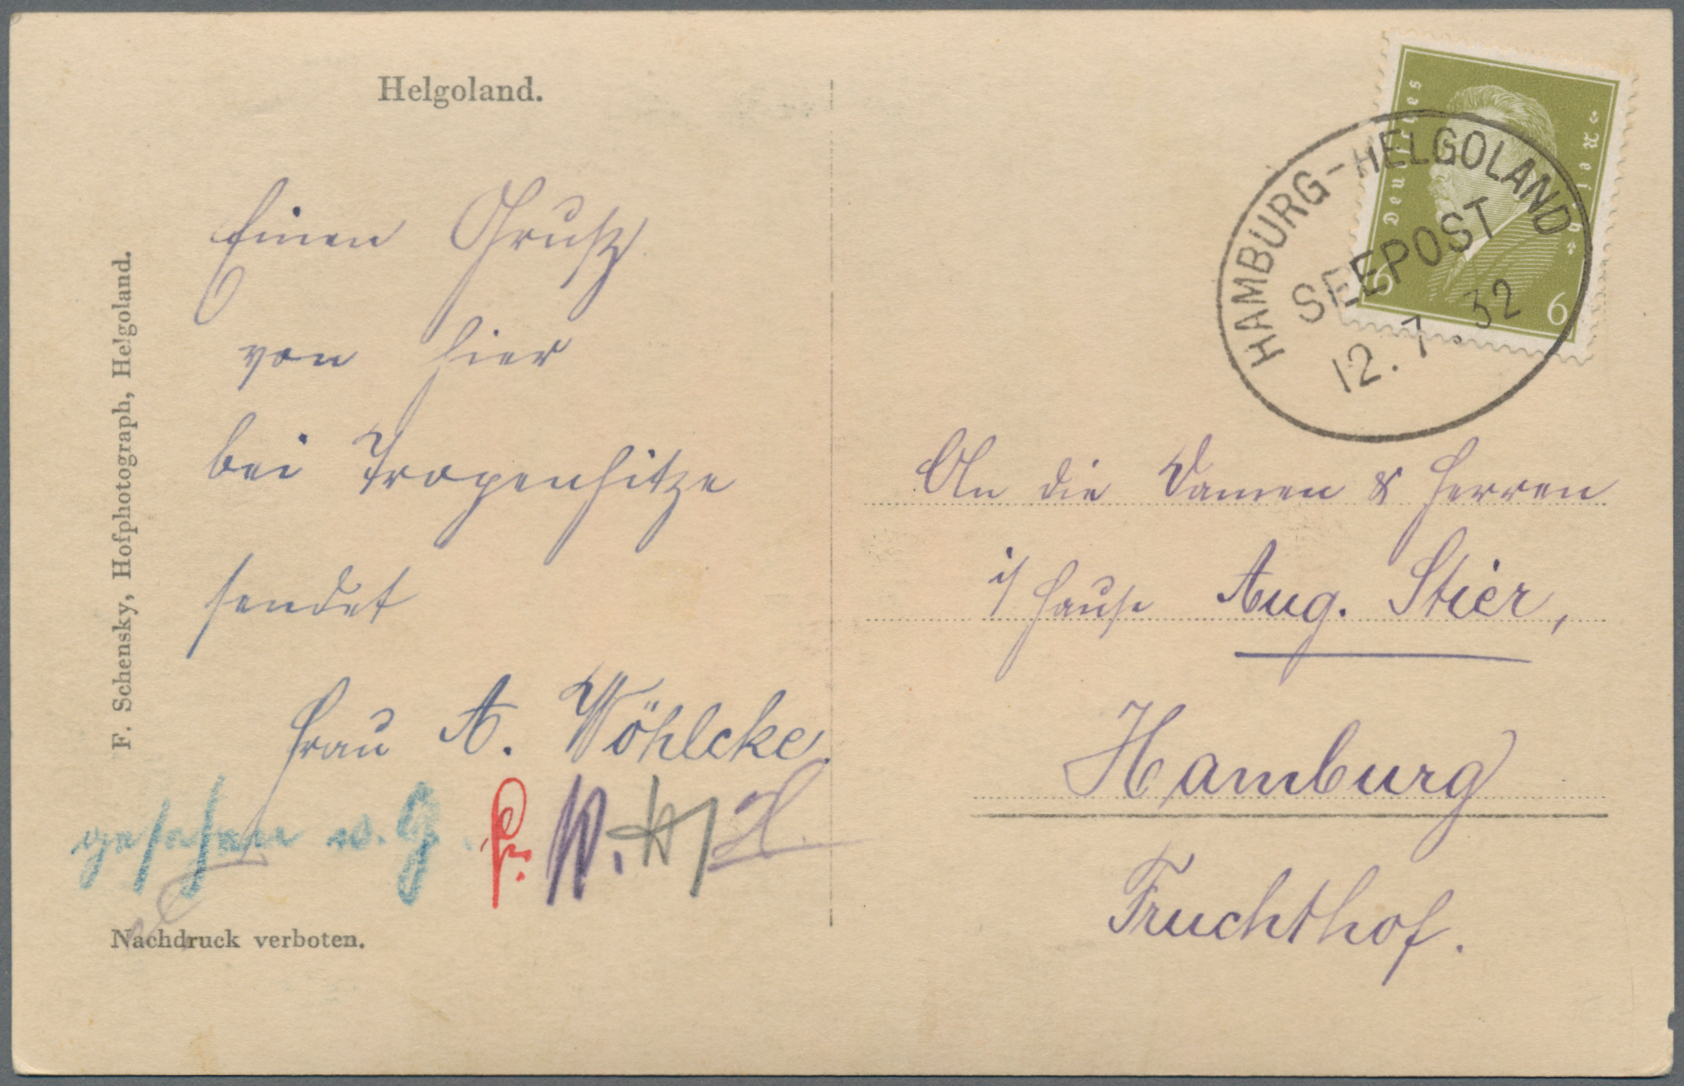 Helgoland.
Einen Gruß
von hier
bei Tropenhitze
sendet
Frau A. Wöhlcke
gesehen
F. Schensky, Hofphotograph, Helgoland.
Nachdruck verboten.
Deutsches Reich
6 6
HAMBURG-HELGOLAND
SEEPOST
12.7.32
An die Damen & Herren
i/ Hause Aug. Stier,
Hamburg
Fruchthof.